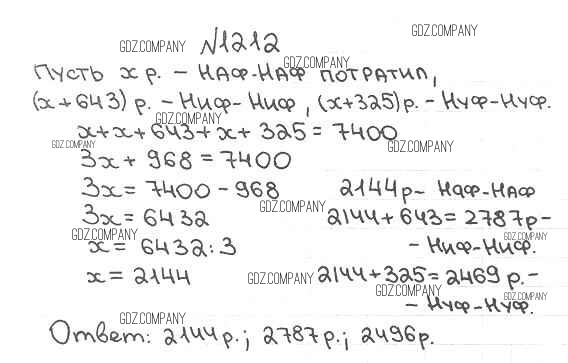 GDZ.COMPANY
GDZ.COMPANY
№1212
GDZ.COMPANY
Пусть x р. – НАФ-НАФ потратил,
(x+643) р. – Ниф-Ниф, (x+325) р. – Нуф-Нуф.
GDZ.COMPANY
x+x+643+x+325=7400
GDZ.COMPANY
GDZ.COMPANY
3x+968=7400
3x=7400-968
2144 р – НАФ-НАФ
GDZ.COMPANY
3x=6432
2144+643=2787 р –
GDZ.COMPANY
GDZ.COMPANY
x=6432:3
– Ниф-Ниф.
x=2144
GDZ.COMPANY
2144+325=2469 р. –
GDZ.COMPANY
GDZ.COMPANY
– Нуф-Нуф.
GDZ.COMPANY
Ответ: 2144 р.; 2787 р.; 2496 р.